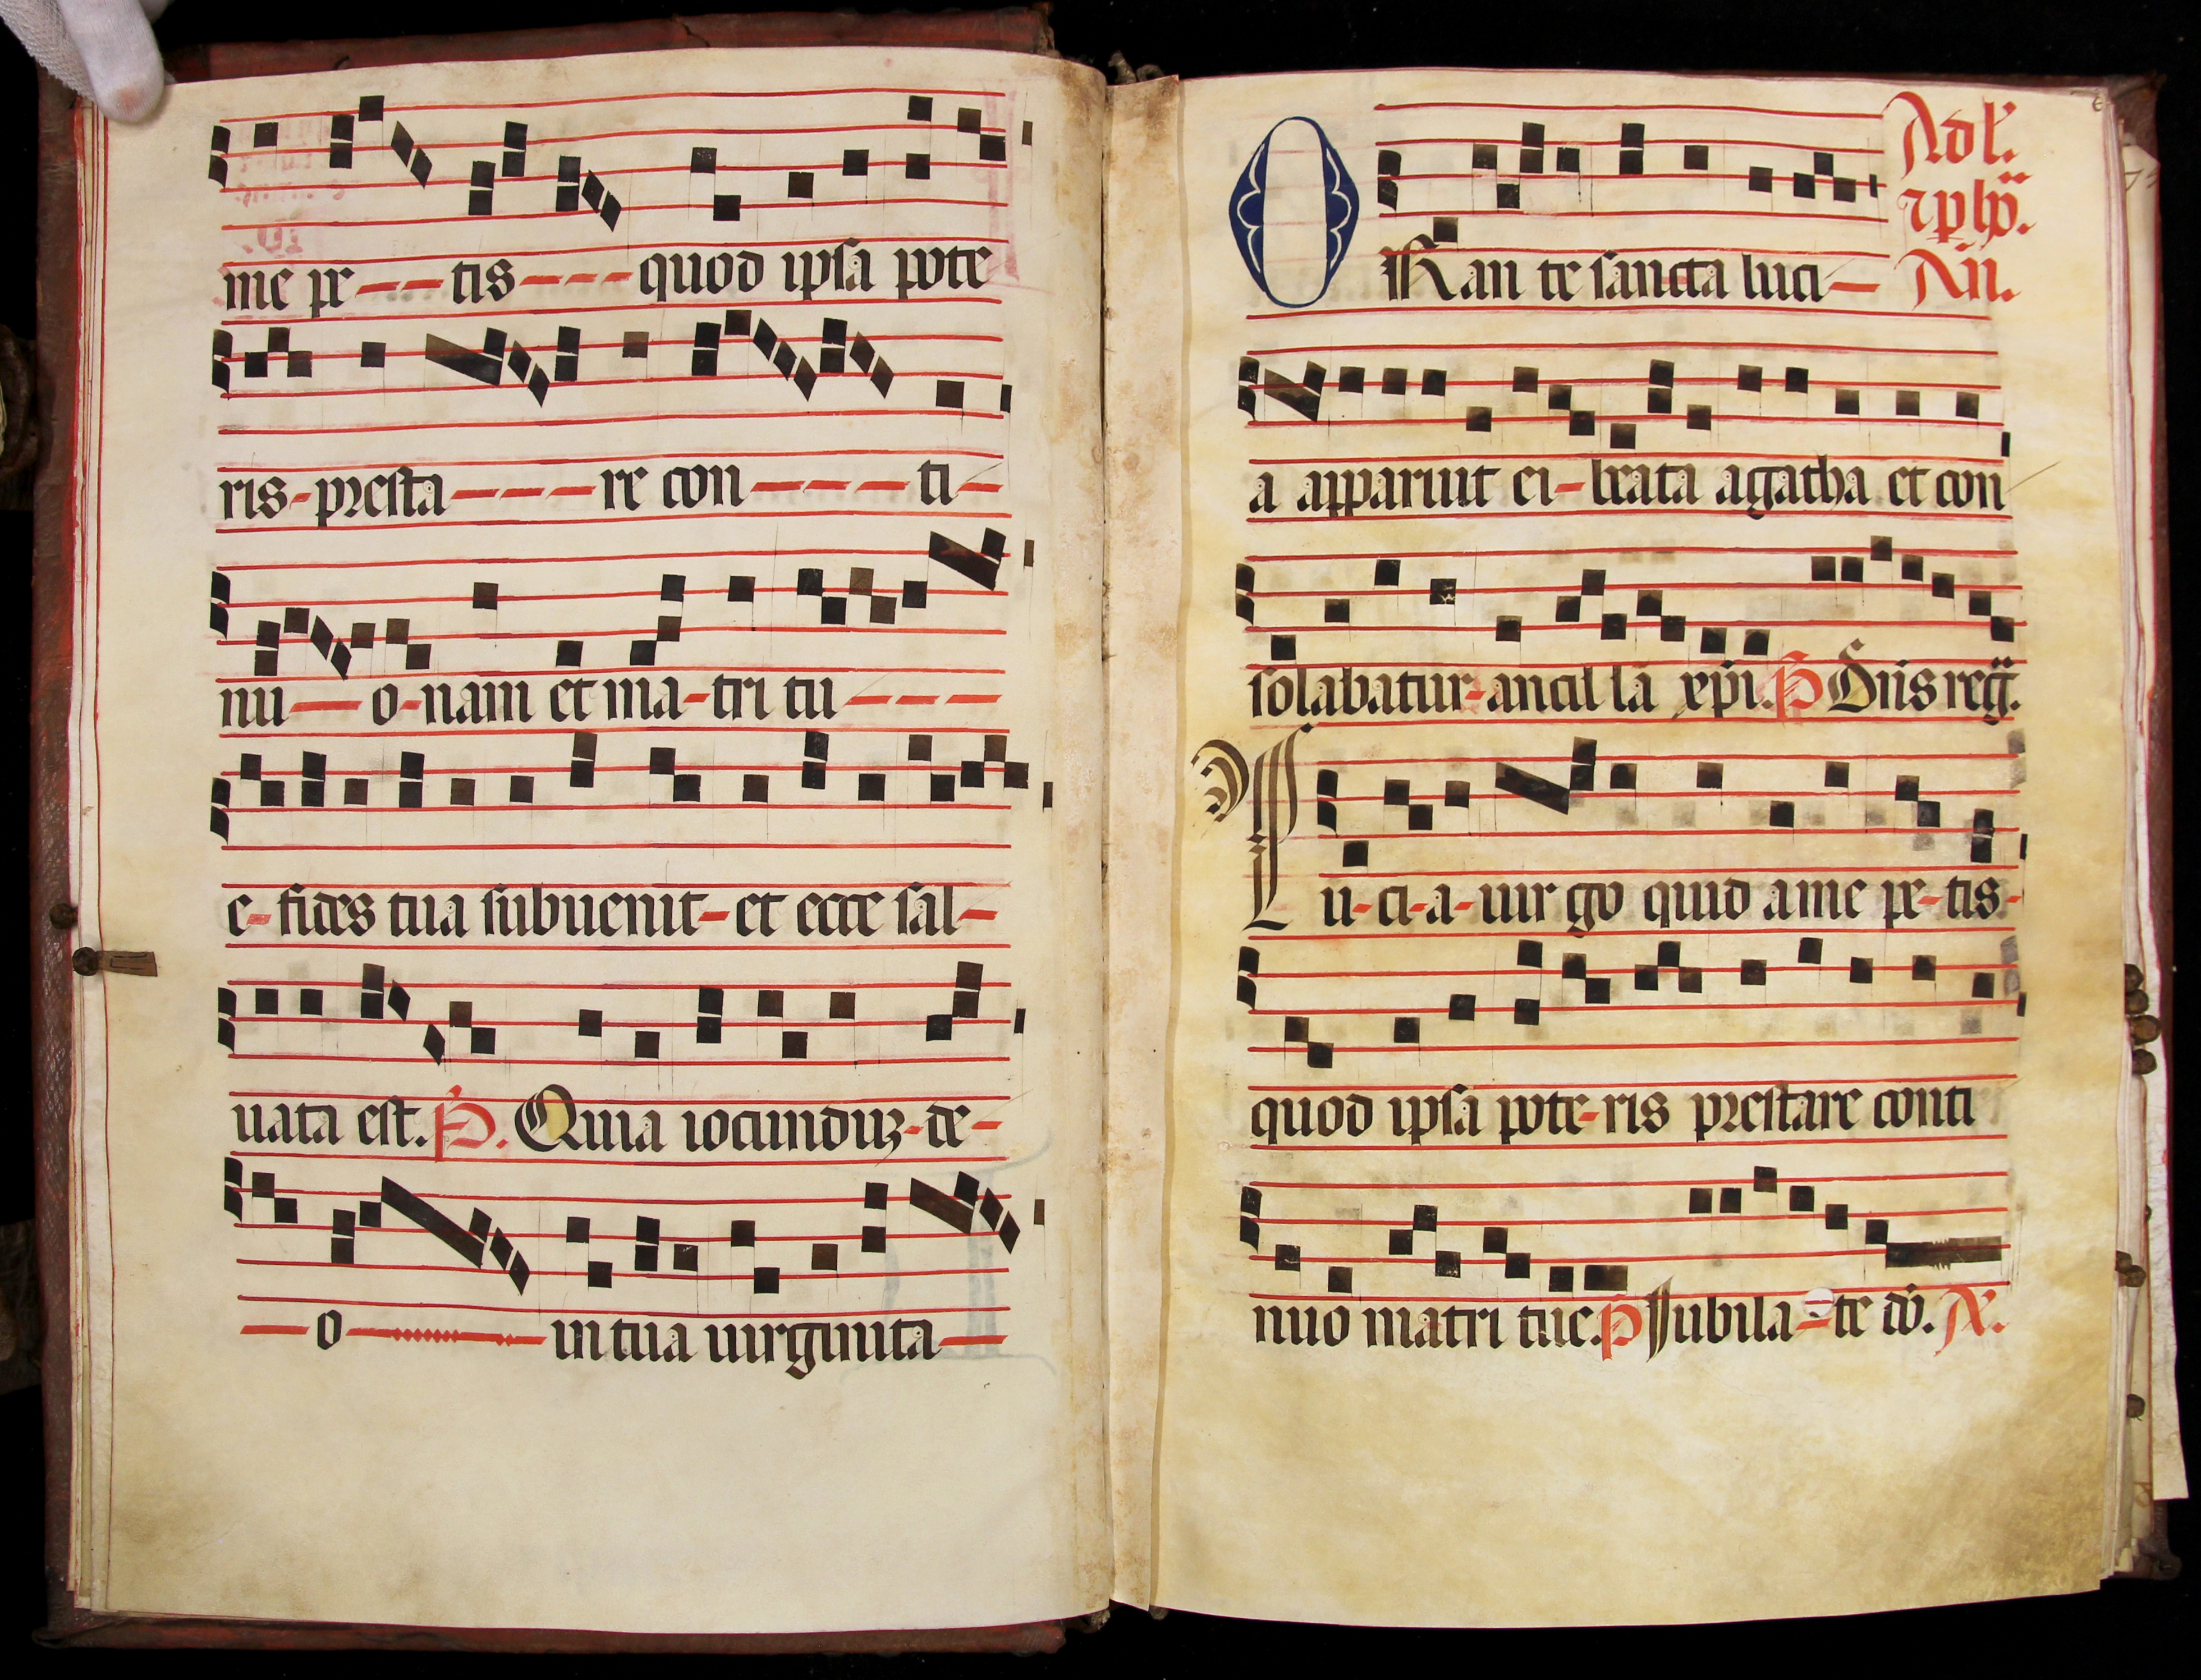 me pe---tis---quod ipsa pote
ris-presta---re con----ti-
nu--o-nam et ma-tri tu---
e-fides tua subuenit-et ecce sal-
uata est. P. Quia iocunduz-de-
--o-----in tua uirginita-
Ad l'.
ORan te sancta luci-
An.
a apparuit ei-beata agatha et con
solabatur-ancil la xpi. P Dns reg.
Lu-ci-a-uir go quid a me pe-tis-
quod ipsa pote-ris prestare conti
nuo matri tue. P Iubila-te do. A.